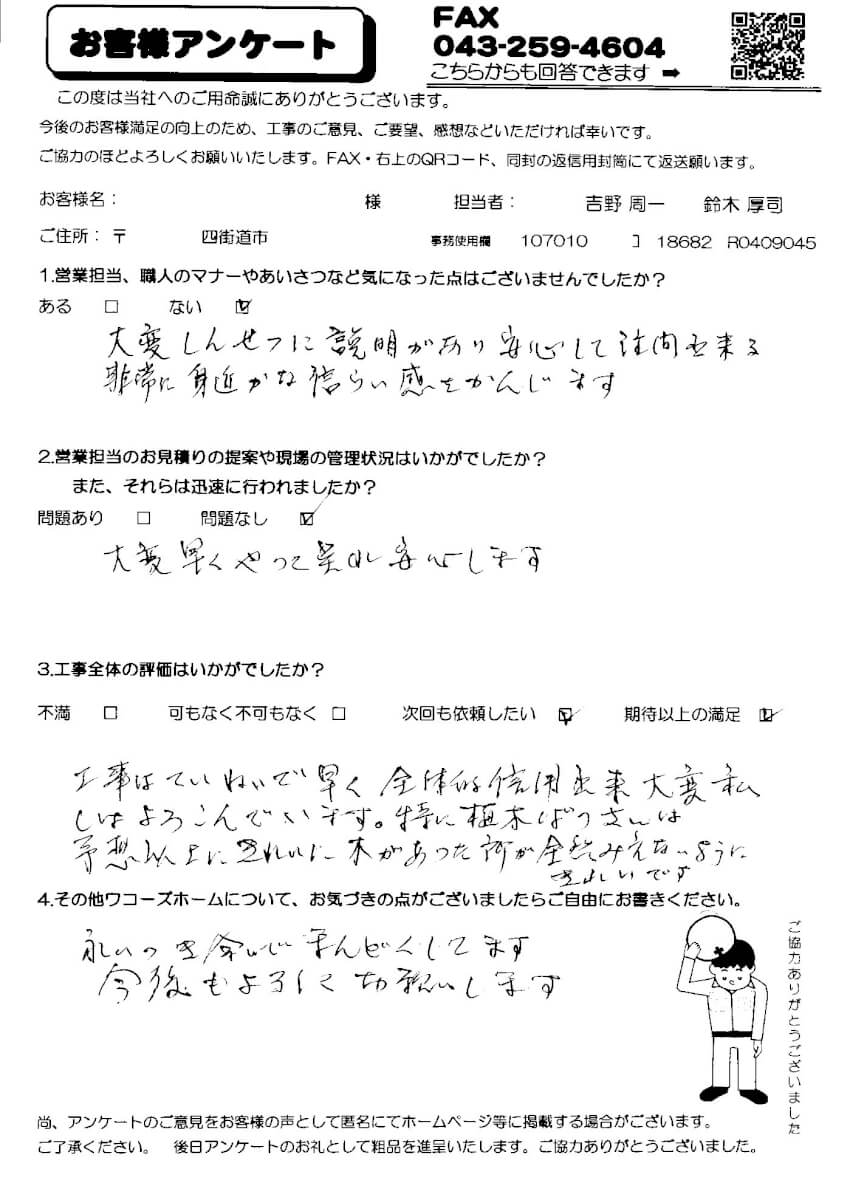 お客様アンケート
FAX
043-259-4604
こちらからも回答できます ➡
この度は当社へのご用命誠にありがとうございます。
今後のお客様満足の向上のため、工事のご意見、ご要望、感想などいただければ幸いです。
ご協力のほどよろしくお願いいたします。FAX・右上のQRコード、同封の返信用封筒にて返送願います。
お客様名： 様 担当者： 吉野 周一 鈴木 厚司
ご住所：〒 四街道市 事務使用欄 107010 18682 R0409045
1.営業担当、職人のマナーやあいさつなど気になった点はございませんでしたか？
ある □ ない ☑
大変しんせつに説明があり安心して 出来る
非常に身近かな信らい感をかんじます
2.営業担当のお見積りの提案や現場の管理状況はいかがでしたか？
また、それらは迅速に行われましたか？
問題あり □ 問題なし ☑
大変早くやって呉れ安心します
3.工事全体の評価はいかがでしたか？
不満 □ 可もなく不可もなく □ 次回も依頼したい ☑ 期待以上の満足 ☑
工事はていねいで早く全体的信用出来大変私
しはよろこんでいます。特に植木ばっさいは
予想以上にきれいに木があった所が全然みえないように
きれいです
4.その他ワコーズホームについて、お気づきの点がございましたらご自由にお書きください。
永いつき合いで してます
今後もよろしく お願いします
ご協力ありがとうございました
尚、アンケートのご意見をお客様の声として匿名にてホームページ等に掲載する場合がございます。
ご了承ください。 後日アンケートのお礼として粗品を進呈いたします。ご協力ありがとうございました。